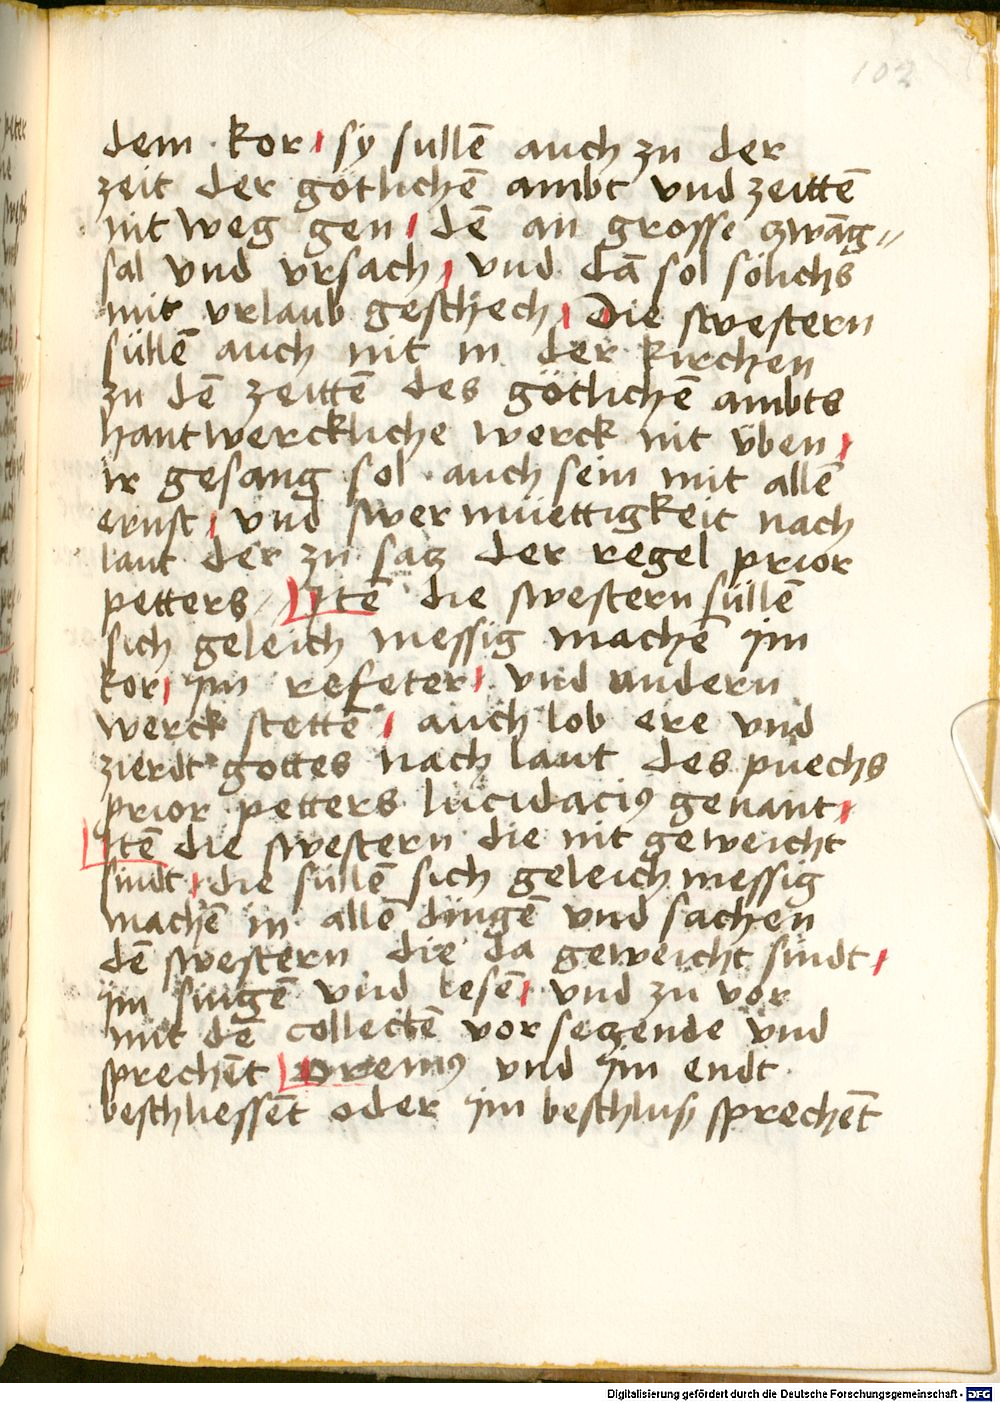 102
dem kor sÿ sullē auch zu der
zeit der götlichē ambt vnd zeittē
nit weg gen dē an grosse zwāg„
sal vnd vrsach vnd dā sol sölichs
mit vrlaub geschech Die swestern
süllē auch nit in der kirchen
zu dē zeittē des götlichē ambts
hantwerckliche werck nit üben
ir gesang sol auch sein mit allē
ernst vnd swermüettigkeit nach
laut der zu satz der regel prior
petters„ Itē die swestern süllē
sich geleich messig machē im
kor im refeter vnd andern
werck stettē auch lob ere vnd
zierdt gottes nach laut des puechs
prior petters lucidaciꝰ genant
Itē die swestern die nit geweicht
sindt die süllē sich geleich messig
machē in allē dingē vnd sachen
dē swestern die da geweicht sindt
im singē vnd lesē vnd zu vor
mit dē collectē vor setzende vnd
sprechēt oremꝰ vnd im endt
beschliessēt oder im beschluß sprechēt
Digitalisierung gefördert durch die Deutsche Forschungsgemeinschaft - DFG